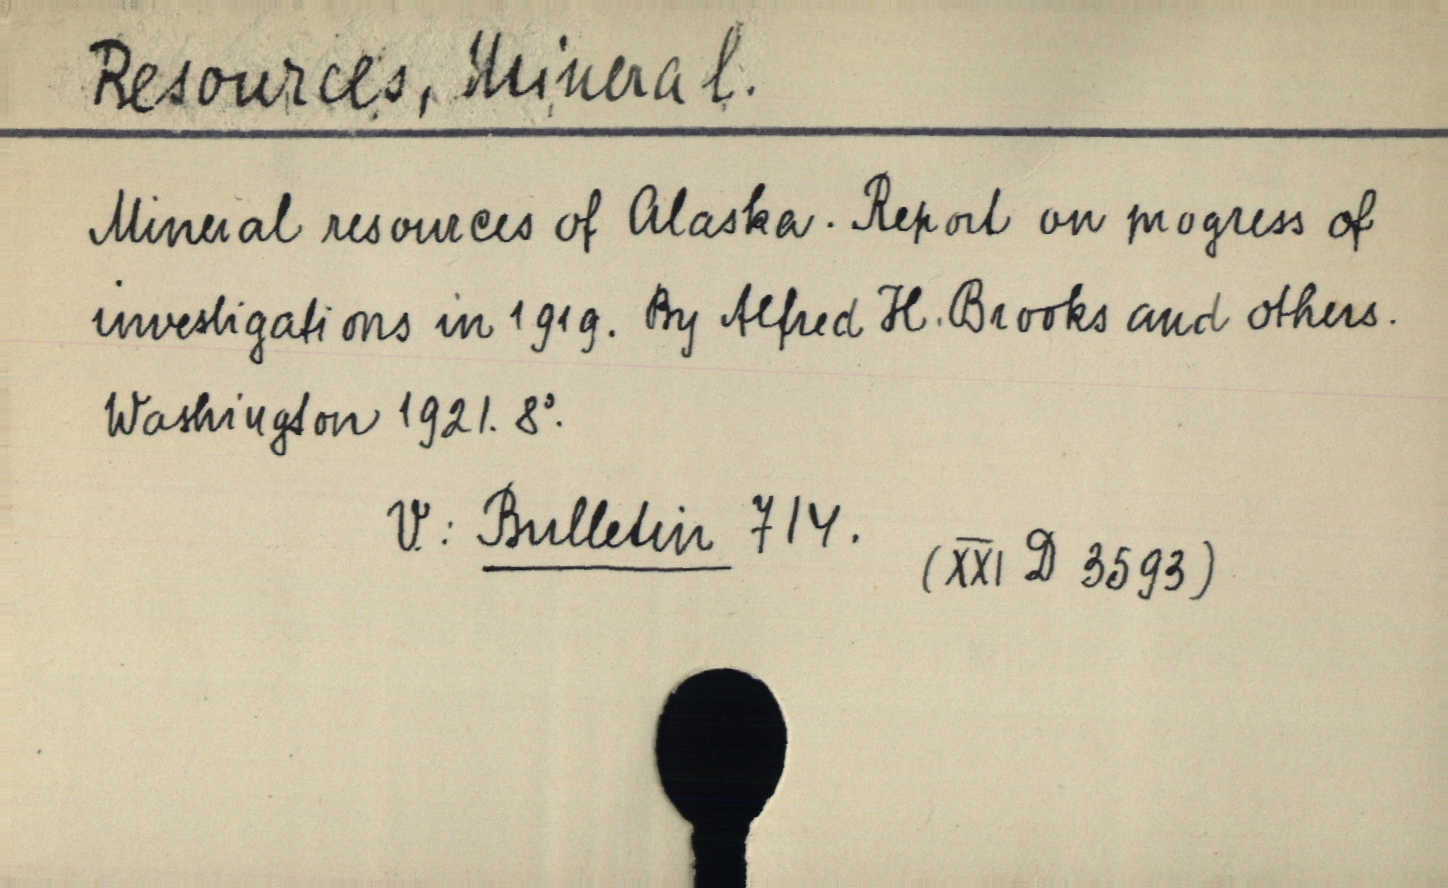 Resources, Mineral.
Mineral resources of Alaska. Report on progress of
investigations in 1919. By Alfred H. Brooks and others.
Washington 1921. 8°.
V: Bulletin 714.
(XXI D 3593)